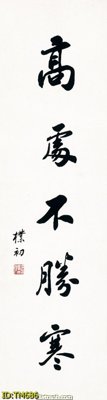 高處不勝寒
樸初
ID:TN686